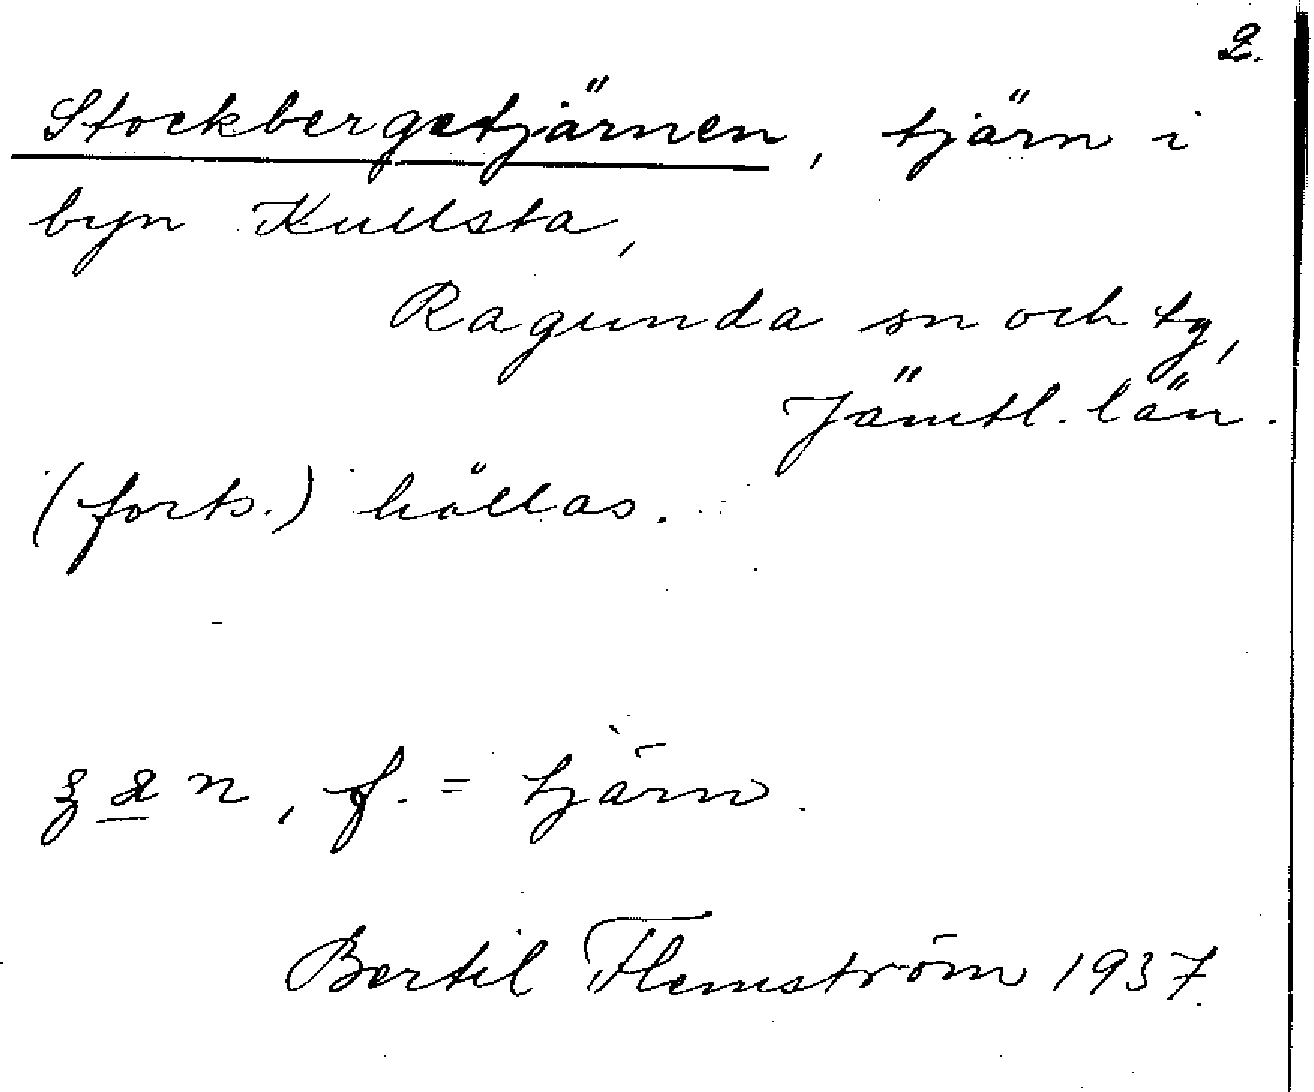 2.
Stockbergstjärnen, tjärn i
byn Kullsta,
Ragunda sn och tg,
Jämtl. län.
(forts.) hållas.
n, f. = tjärn.
Bertil Flemström 1937.